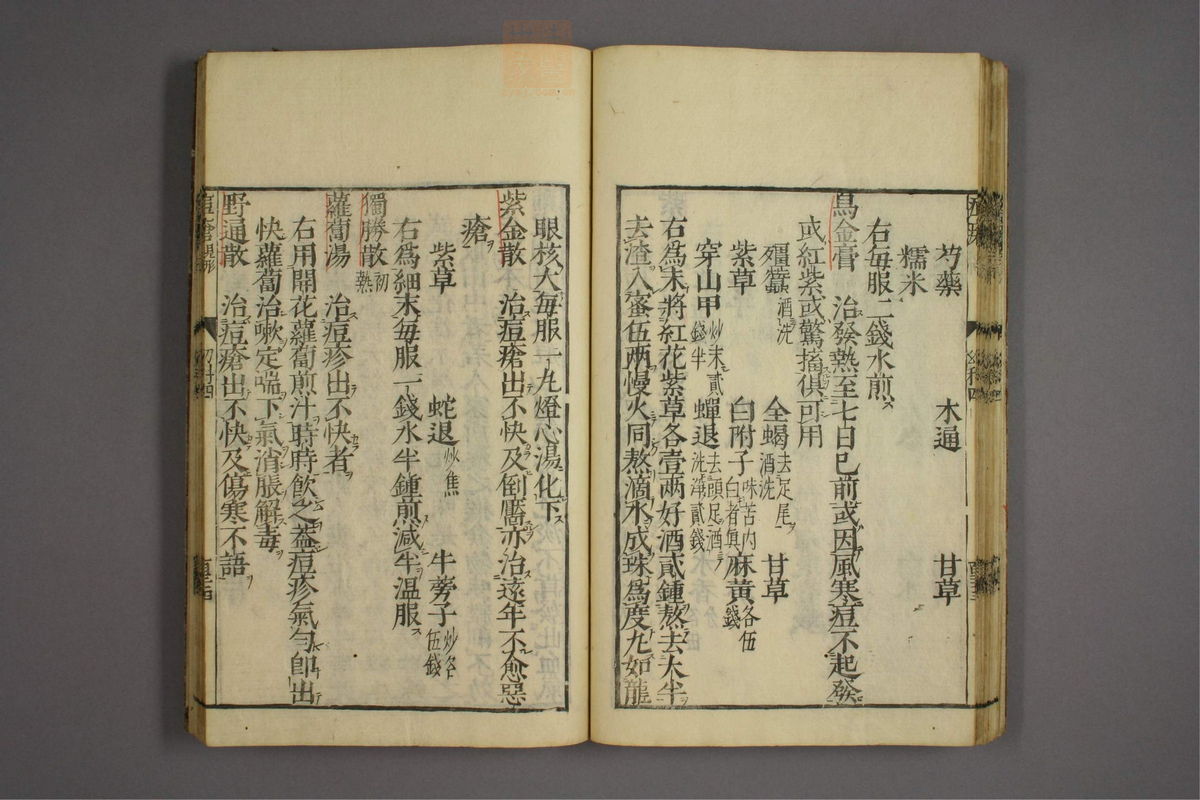 芍藥 木通 甘草
糯米
右每服二錢水煎
烏金膏 治發熱至七日已前或因風寒痘不起發
或紅紫或驚搐俱可用
殭蠶酒洗 全蝎去足尾酒洗 甘草
紫草 白附子味苦內白者眞 麻黃各伍錢
穿山甲炒末貳錢半 蟬退去頭足酒洗淨貳錢
右爲末將紅花紫草各壹兩好酒貳鍾熬去大半
去渣入蜜伍兩慢火同熬滴水成珠爲度丸如龍
眼核大每服一丸燈心湯化下
紫金散 治痘瘡出不快及倒靨亦治遠年不愈惡
瘡
紫草 蛇退炒焦 牛蒡子炒各伍錢
右爲細末每服一錢水半鍾煎減半溫服
獨勝散初熱
蘿蔔湯 治痘疹出不快者
右用開花蘿蔔煎汁時時飲之蓋痘疹氣勻卽出
快蘿蔔治嗽定喘下氣消脹解毒
野通散 治痘瘡出不快及傷寒不語